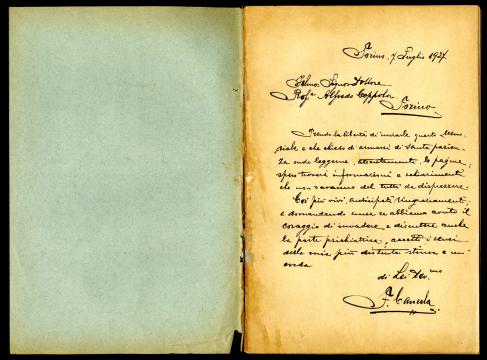 Torino, 7 Luglio 1927
Illmo. Signor Dottore
Prof.r Alfredo Coppola
Torino
Prendo la libertà di inviarle questo Memo-
riale e che chiedo di armarsi di santa pazien-
za onde leggerne, attentamente, le pagine,
spero troverà informazioni e schiarimenti
che non saranno del tutto da disprezzare.
Coi più vivi, anticipati ringraziamenti,
e domandando scusa se abbiamo avuto il
coraggio di invadere e discutere anche
la parte psichiatrica, accetti i sensi
della mia più distinta stima e
di Lei Dev.mo
F. Canella